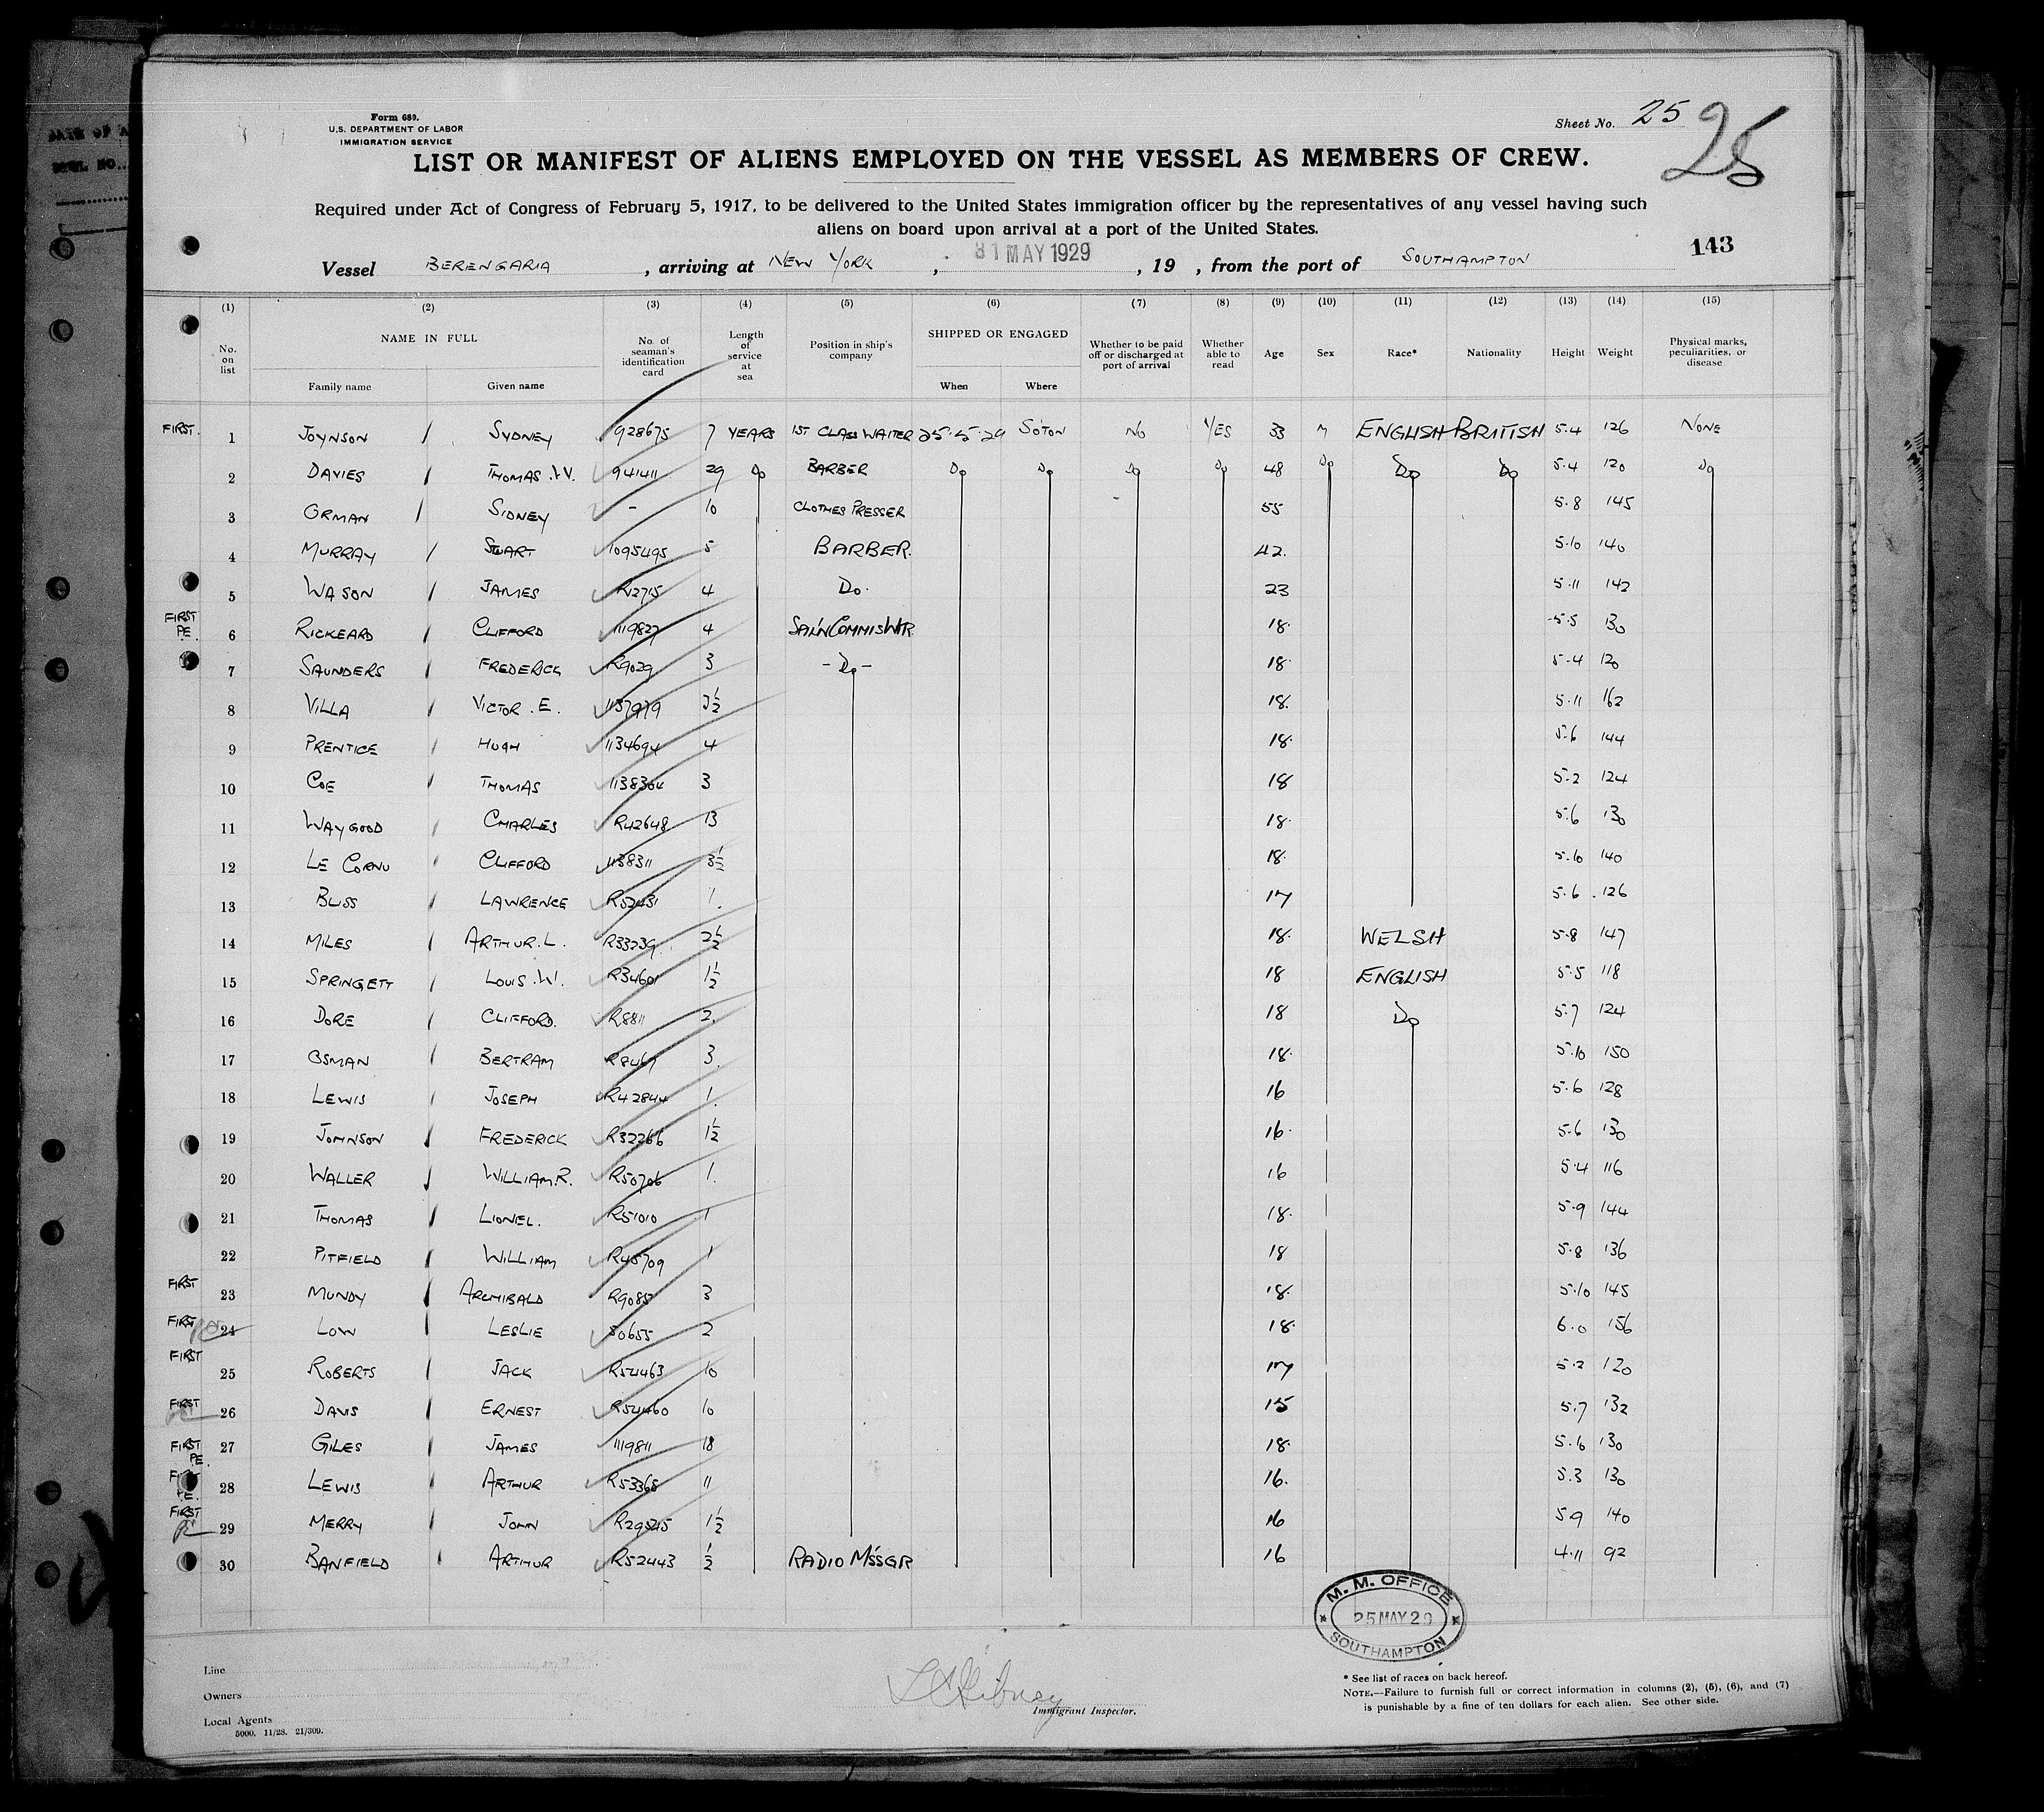 Form 680.
U.S. DEPARTMENT OF LABOR
IMMIGRATION SERVICE
Sheet No. 25
25
LIST OR MANIFEST OF ALIENS EMPLOYED ON THE VESSEL AS MEMBERS OF CREW.
Required under Act of Congress of February 5, 1917, to be delivered to the United States immigration officer by the representatives of any vessel having such
aliens on board upon arrival at a port of the United States.
143
Vessel BERENGARIA, arriving at NEW YORK, 31 MAY 1929, 19 , from the port of SOUTHAMPTON
(1) (2) (3) (4) (5) (6) (7) (8) (9) (10) (11) (12) (13) (14) (15)
No. on list NAME IN FULL Family name Given name No. of seaman's identification card Length of service at sea Position in ship's company SHIPPED OR ENGAGED When Where Whether to be paid off or discharged at port of arrival Whether able to read Age Sex Race* Nationality Height Weight Physical marks, peculiarities, or disease
FIRST. 1 JOYNSON / SYDNEY 928675 7 YEARS 1ST CLASS WAITER 25.5.29 SOTON NO YES 33 M ENGLISH BRITISH 5.4 126 NONE
2 DAVIES / THOMAS .W. 941411 29 Do BARBER Do Do Do Do 48 Do Do Do 5.4 120 Do
3 ORMAN / SIDNEY - 10 CLOTHES PRESSER 55 5.8 145
4 MURRAY / STUART 1095495 5 BARBER. 42. 5.10 140
5 WASON / JAMES R2715 4 Do. 23 5.11 142
FIRST PE. 6 RICKEARD / CLIFFORD 1119827 4 SAL'N COMMIS WTR 18. 5.5 130
7 SAUNDERS / FREDERICK R9029 3 -Do- 18. 5.4 120
8 VILLA / VICTOR .E. 1137979 3½ 18. 5.11 162
9 PRENTICE / HUGH 1134694 4 18. 5.6 144
10 COE / THOMAS 1138304 3 18 5.2 124
11 WAYGOOD / CHARLES R42648 13 18. 5.6 130
12 LE CORNU / CLIFFORD 1138311 3½ 18. 5.10 140
13 BLISS / LAWRENCE R52431 1. 17 5.6 126
14 MILES / ARTHUR.L. R33239 2½ 18. WELSH 5.8 147
15 SPRINGETT / LOUIS .W. R34601 1½ 18 ENGLISH 5.5 118
16 DORE / CLIFFORD. R8811 2. 18 Do 5.7 124
17 OSMAN / BERTRAM R8467 3. 18. 5.10 150
18 LEWIS / JOSEPH R42844 1. 16 5.6 128
19 JOHNSON / FREDERICK R32266 1½ 16. 5.6 130
20 WALLER / WILLIAM.R. R50706 1. 16 5.4 116
21 THOMAS / LIONEL. R51010 1 18. 5.9 144
22 PITFIELD / WILLIAM R45709 1 18 5.8 136
FIRST 23 MUNDY / ARCHIBALD R9085 3 18. 5.10 145
FIRST 24 LOW / LESLIE 50655 2 18. 6.0 156
FIRST 25 ROBERTS / JACK R54463 10 17 5.2 120
FIRST 26 DAVIS / ERNEST R54460 10 15 5.7 132
FIRST PE. 27 GILES / JAMES 1119811 18 18. 5.6 130
PE. 28 LEWIS / ARTHUR R53368 11 16. 5.3 130
FIRST 29 MERRY / JOHN R29515 1½ 16 5.9 140
30 BANFIELD / ARTHUR R52443 ½ RADIO M'SSGR 16 4.11 92
M. M. OFFICE
25 MAY 29
SOUTHAMPTON
Line
Owners
Local Agents
5000. 11/28. 21/309.
Immigrant Inspector.
* See list of races on back hereof.
NOTE.—Failure to furnish full or correct information in columns (2), (5), (6), and (7)
is punishable by a fine of ten dollars for each alien. See other side.